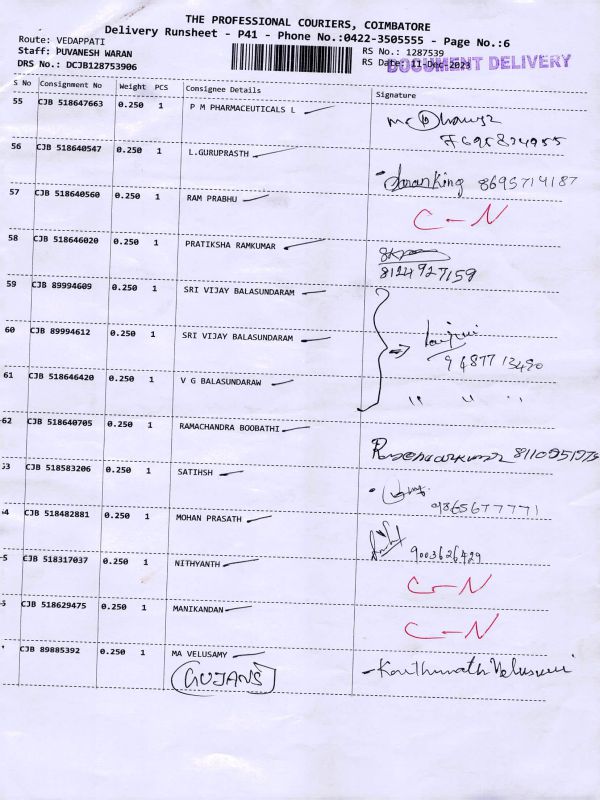 THE PROFESSIONAL COURIERS, COIMBATORE
Delivery Runsheet - P41 - Phone No.:0422-3505555 - Page No.:6
Route: VEDAPPATI
RS No.: 1287539
Staff: PUVANESH WARAN
RS Date: 11-Dec-2023
DRS No.: DCJB128753906
DOCUMENT DELIVERY
S No Consignment No Weight PCS Consignee Details Signature
55 CJB 518647663 0.250 1 P M PHARMACEUTICALS L
56 CJB 518640547 0.250 1 L.GURUPRASTH
8695714187
57 CJB 518640560 0.250 1 RAM PRABHU C-N
58 CJB 518646020 0.250 1 PRATIKSHA RAMKUMAR
8124927159
59 CJB 89994609 0.250 1 SRI VIJAY BALASUNDARAM
60 CJB 89994612 0.250 1 SRI VIJAY BALASUNDARAM
9487713490
61 CJB 518646420 0.250 1 V G BALASUNDARAW " " "
62 CJB 518640705 0.250 1 RAMACHANDRA BOOBATHI
53 CJB 518583206 0.250 1 SATIHSH
9865677771
54 CJB 518482881 0.250 1 MOHAN PRASATH
9003626429
5 CJB 518317037 0.250 1 NITHYANTH C-N
CJB 518629475 0.250 1 MANIKANDAN C-N
CJB 89885392 0.250 1 MA VELUSAMY
GUJANS